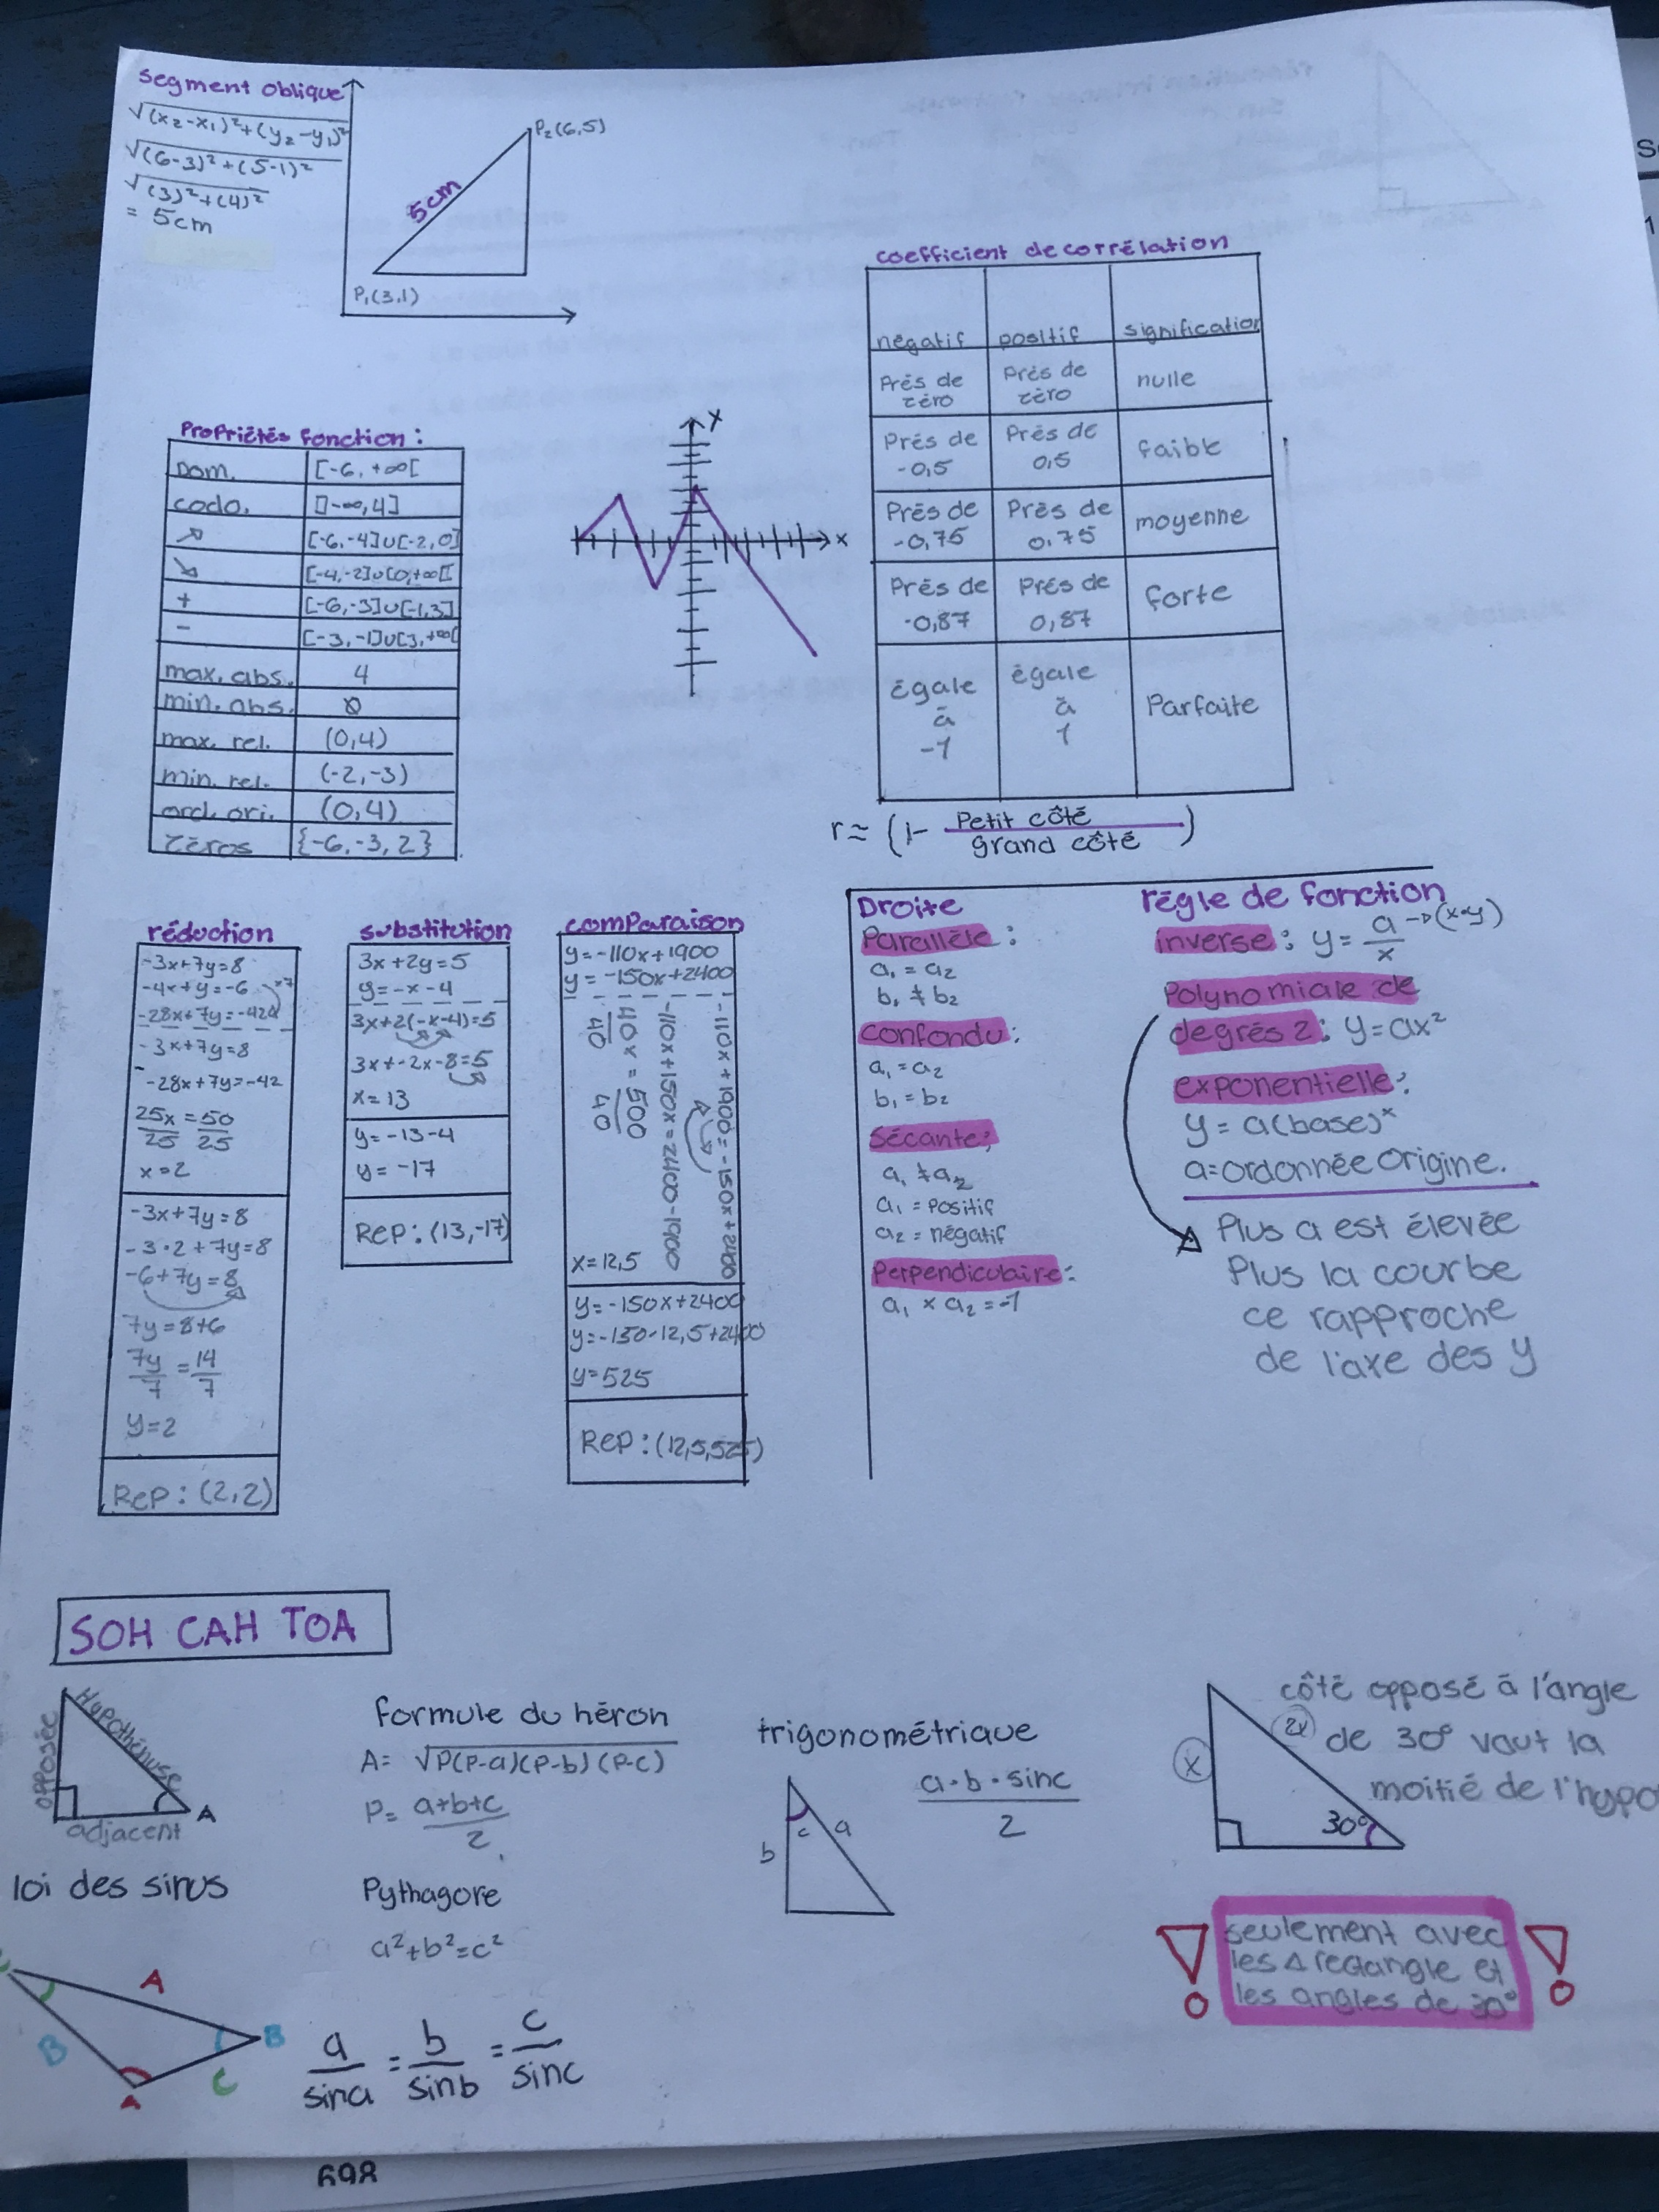 segment oblique
√(x₂-x₁)²+(y₂-y₁)²
√(6-3)²+(5-1)²
√(3)²+(4)²
= 5cm
P₂(6,5)
5cm
P₁(3,1)
coefficient de corrélation
négatif positif signification
Près de zéro Près de zéro nulle
Près de -0,5 Près de 0,5 faible
Près de -0,75 Près de 0.75 moyenne
Près de -0,87 Près de 0,87 forte
égale à -1 égale à 1 Parfaite
r≈ (1- Petit côté / grand côté)
Propriétés fonction :
Dom. [-6,+∞[
codo. ]-∞,4]
↗ [-6,-4]∪[-2,0]
↘ [-4,-2]∪[0,+∞[
+ [-6,-3]∪[-1,3]
- [-3,-1]∪[3,+∞[
max. abs. 4
min. abs. Ø
max. rel. (0,4)
min. rel. (-2,-3)
ord. ori. (0,4)
Zéros {-6,-3,2}
x
x
réduction
-3x+7y=8
-4x+y=-6 ×7
-28x+7y=-42
-3x+7y=8
-28x+7y=-42
25x/25 = 50/25
x=2
-3x+7y=8
-3·2+7y=8
-6+7y=8
7y=8+6
7y/7 = 14/7
y=2
Rep: (2,2)
substitution
3x+2y=5
y=-x-4
3x+2(-x-4)=5
3x+-2x-8=5
x=13
y=-13-4
y=-17
Rep: (13,-17)
comparaison
y=-110x+1900
y=-150x+2400
-110x+1900=-150x+2400
-110x+150x=2400-1900
40x/40 = 500/40
x=12,5
y=-150x+2400
y=-150·12,5+2400
y=525
Rep: (12,5,525)
Droite
Parallèle :
a₁ = a₂
b₁ ≠ b₂
confondu:
a₁=a₂
b₁=b₂
Sécante;
a₁ ≠ a₂
a₁ = positif
a₂ = négatif
Perpendiculaire:
a₁ × a₂ = -1
règle de fonction
inverse: y= a/x →(x·y)
Polynomiale de
degrés 2: y=ax²
exponentielle:
y = a(base)ˣ
a=ordonnée origine.
Plus a est élevée
Plus la courbe
ce rapproche
de l'axe des y
SOH CAH TOA
opposée
Hypothénuse
adjacent
A
formule du héron
A= √P(P-a)(P-b)(P-c)
P= a+b+c / 2
Pythagore
a²+b²=c²
trigonométrique
a·b·sinc / 2
b
c
a
côté opposé à l'angle
de 30° vaut la
moitié de l'hypo
x
2x
30°
seulement avec
les △ rectangle et
les angles de 30°
loi des sinus
A
B
B
C
A
a/sina = b/sinb = c/sinc
698